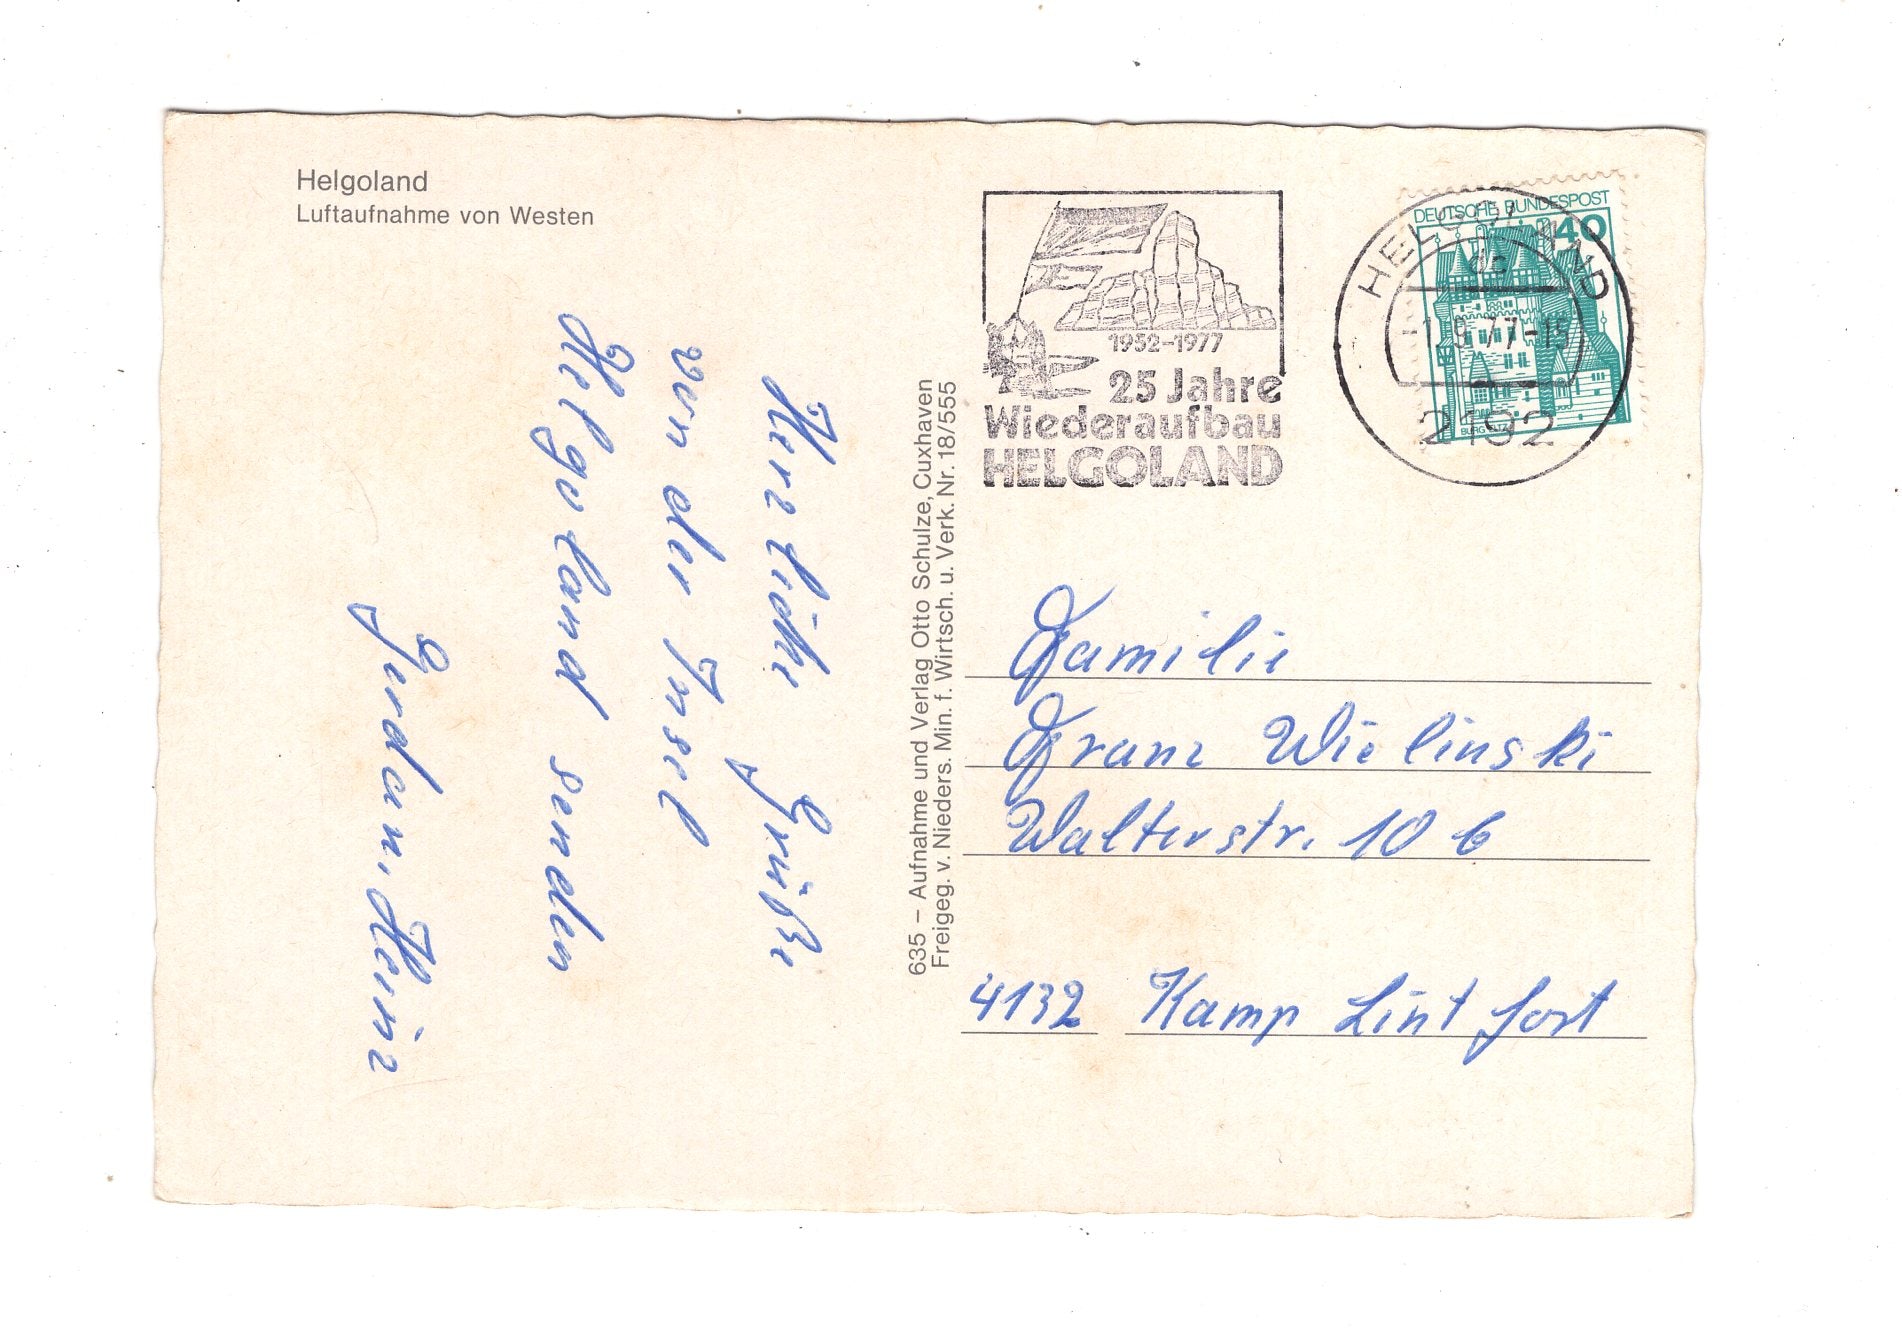 Helgoland
Luftaufnahme von Westen
Herzliche Grüße
von der Insel
Helgoland senden
Gerda u. Heinz
635 – Aufnahme und Verlag Otto Schulze, Cuxhaven
Freigeg. v. Nieders. Min. f. Wirtsch. u. Verk. Nr. 18/555
1952-1977
25 Jahre
Wiederaufbau
HELGOLAND
DEUTSCHE BUNDESPOST
40
HELGOLAND
cc
77-15
2192
Familie
Franz Wielinski
Walterstr. 10 b
4132 Kamp Lint fort